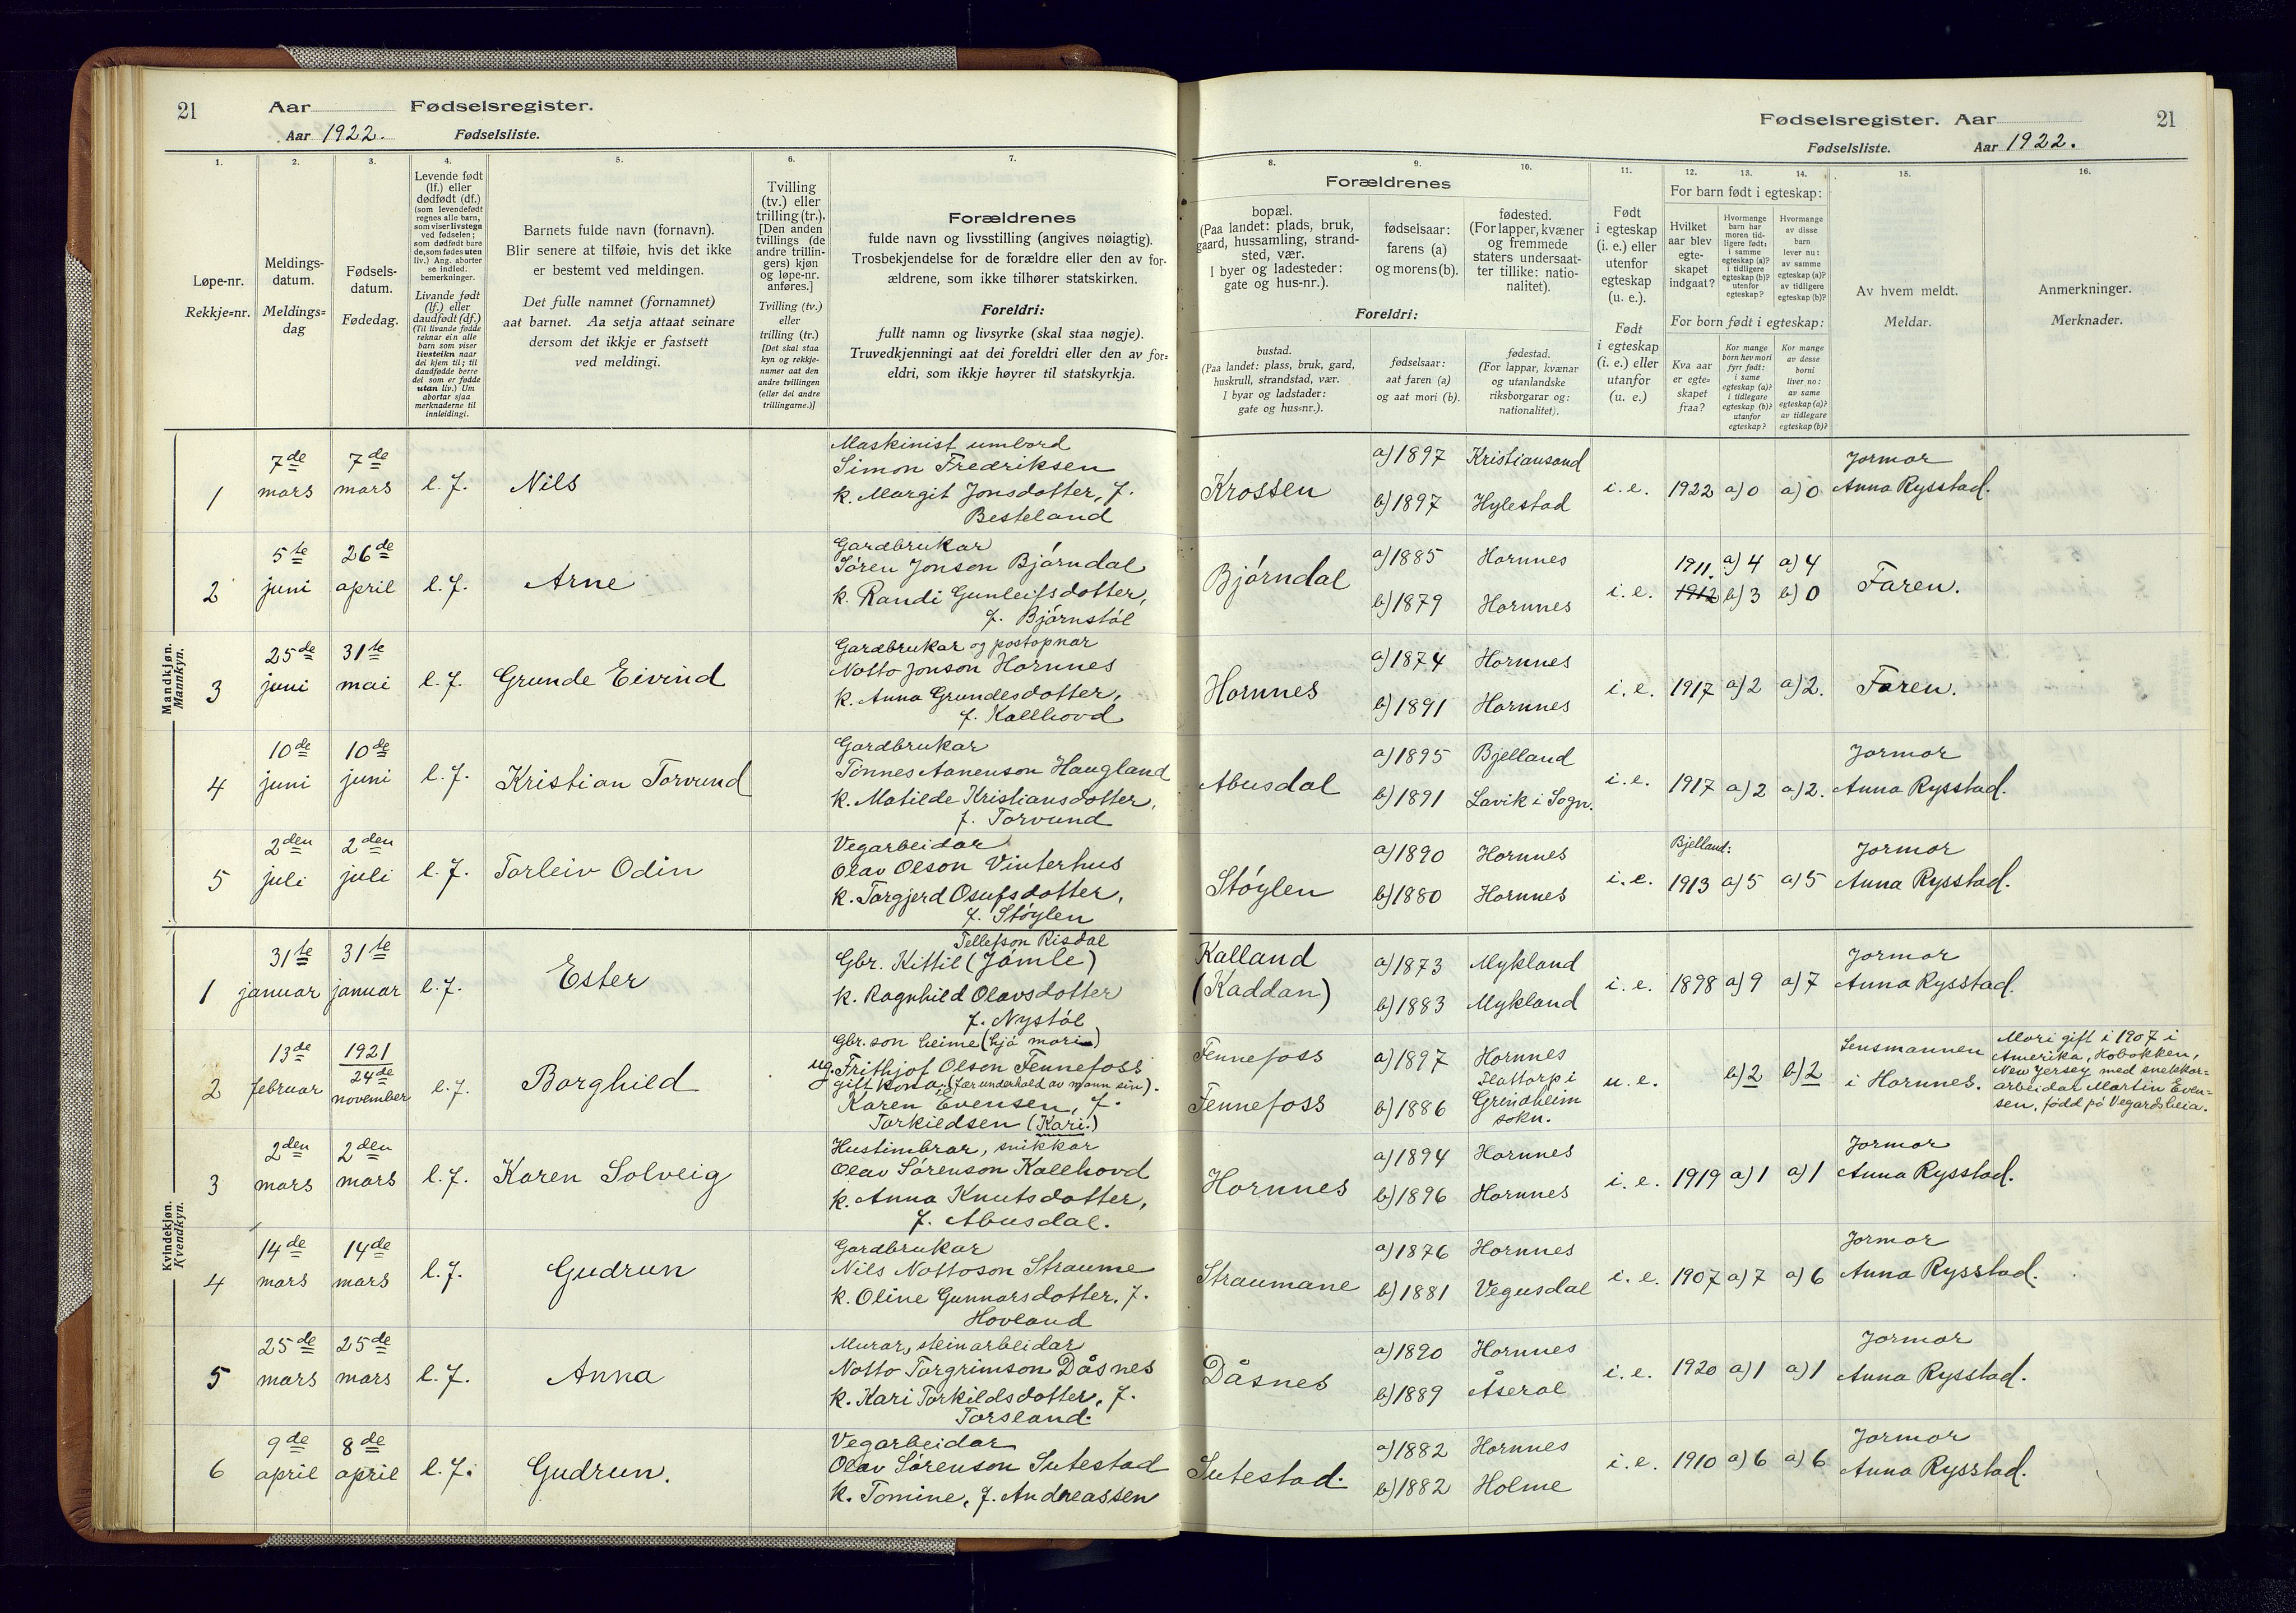 21 Aar Fødselsregister.
Aar 1922. Fødselsliste.
1. 2. 3. 4. 5. 6. 7.
Løpe-nr.
Rekkje=nr.
Meldings-
datum.
Meldings=
dag
Fødsels-
datum.
Fødedag.
Levende født
(lf.) eller
dødfødt (df.)
(som levendefødt
regnes alle barn,
som viser livstegn
ved fødselen;
som dødfødt bare
de, som fødes uten
liv.) Ang. aborter
se indled.
bemerkninger.
Livande født
(lf.) eller
daudfødt (df.)
(Til livande fødde
reknar ein alle
barn som viser
livsteikn naar
dei kjem til; til
daudfødde berre
dei som er fødde
utan liv.) Um
abortar sjaa
merknaderne til
innleidingi.
Barnets fulde navn (fornavn).
Blir senere at tilføie, hvis det ikke
er bestemt ved meldingen.
Det fulle namnet (fornamnet)
aat barnet. Aa setja attaat seinare
dersom det ikkje er fastsett
ved meldingi.
Tvilling
(tv.) eller
trilling (tr.).
[Den anden
tvillings (de
andre trillin-
gers) kjøn
og løpe-nr.
anføres.]
Tvilling (tv.)
eller
trilling (tr.)
[Det skal staa
kyn og rekkje-
numer aat den
andre tvillingen
(eller dei andre
trillingarne.)]
Forældrenes
fulde navn og livsstilling (angives nøiagtig).
Trosbekjendelse for de forældre eller den av for-
ældrene, som ikke tilhører statskirken.
Foreldri:
fullt namn og livsyrke (skal staa nøgje).
Truvedkjenningi aat dei foreldri eller den av for=
eldri, som ikkje høyrer til statskyrkja.
Mandkjøn.
Mannkyn.
1 7de mars 7de mars l. f. Nils
Maskinist umbord
Simon Fredriksen
k. Margit Jonsdotter, f.
Besteland
2 5te juni 26de april l. f. Arne
Gardbrukar
Søren Jonson Bjørndal
k. Randi Gunleifsdotter,
f. Bjørnstøl
3 25de juni 31te mai l. f. Grunde Eivind
Gardbrukar og postopnar
Notto Jonson Hornnes
k. Anna Grundesdotter,
f. Kallhovd
4 10de juni 10de juni l. f. Kristian Torvund
Gardbrukar
Tønnes Aanenson Haugland
k. Matilde Kristiansdotter,
f. Torvund
5 2den juli 2den juli l. f. Torleiv Odin
Vegarbeidar
Olav Olson Vinterhus
k. Torgjerd Osufsdotter,
f. Støylen
Kvindekjøn.
Kvendkyn.
1 31te januar 31te januar l. f. Ester
Tellefson Risdal
Gbr. Kittil (Jømle)
k. Ragnhild Olavsdotter
f. Nystøl
2 13de februar 1921 24de november l. f. Borghild
Gbr. son heime (hjå mori)
ug. Frithjof Olson Fennefoss
gift kona, (fær underhald av mann sin).
Karen Evensen, f.
Torkildsen (Kari.)
3 2den mars 2den mars l. f. Karen Solveig
Hustimbrar, snikkar
Olav Sørenson Kallhovd
k. Anna Knutsdotter,
f. Abusdal.
4 14de mars 14de mars l. f. Gudrun
Gardbrukar
Nils Nottoson Straume
k. Oline Gunnarsdotter, f.
Hovland
5 25de mars 25de mars l. f. Anna
Murar, steinarbeidar
Notto Torgrimson Dåsnes
k. Kari Torkildsdotter, f.
Torsland.
6 9de april 8de april l. f. Gudrun.
Vegarbeidar
Olav Sørenson Sutestad
k. Tomine, f. Andreassen
Fødselsregister. Aar 21
Fødselsliste. Aar 1922.
8. 9. 10. 11. 12. 13. 14. 15. 16.
Forældrenes
bopæl.
(Paa landet: plads, bruk,
gaard, hussamling, strand-
sted, vær.
I byer og ladesteder:
gate og hus-nr.).
Foreldri:
bustad.
(Paa landet: plass, bruk, gard,
huskrull, strandstad, vær.
I byar og ladstader:
gate og hus=nr.).
fødselsaar:
farens (a)
og morens (b).
fødselsaar:
aat faren (a)
og aat mori (b).
fødested.
(For lapper, kvæner
og fremmede
staters undersaat-
ter tillike: natio-
nalitet).
fødestad.
(For lappar, kvænar
og utanlandske
riksborgarar og:
nationalitet).
Født
i egteskap
(i. e.) eller
utenfor
egteskap
(u. e.).
Født
i egteskap
(i. e.) eller
utanfor
(u. e.)
For barn født i egteskap:
Hvilket
aar blev
egte-
skapet
indgaat?
Hvormange
barn har
moren tid-
ligere født:
i samme
egteskap (a)?
i tidligere
egteskap (b)?
utenfor
egteskap?
Hvormange
av disse
barn
lever nu:
av samme
egteskap (a)?
av tidligere
egteskap (b)?
For born født i egteskap:
Kva aar
er egte=
skapet
fraa?
Kor mange
born hev mori
fyrr født:
i same
egteskap (a)?
i tidlegare
egteskap (b)?
utanfor
egteskap?
Kor mange
av desse
borni
liver no:
av same
egteskap (a)?
av tidlegare
egteskap (b)?
Av hvem meldt.
Meldar.
Anmerkninger.
Merknader.
Krossen a) 1897 Kristiansand b) 1897 Hylestad i. e. 1922 a) 0 a) 0 Jormor Anna Rysstad.
Bjørndal a) 1885 Hornnes b) 1879 Hornnes i. e. 1911. 1912 a) 4 b) 3 a) 4 b) 0 Faren.
Hornnes a) 1874 Hornnes b) 1891 Hornnes i. e. 1917 a) 2 a) 2. Faren.
Abusdal a) 1895 Bjelland b) 1891 Lavik i Sogn. i. e. 1917 a) 2 a) 2. Jormor Anna Rysstad.
Støylen a) 1890 Hornnes b) 1880 Hornnes i. e. Bjelland: 1913 a) 5 a) 5 Jormor Anna Rysstad.
Kalland (Kaddan) a) 1873 Mykland b) 1883 Mykland i. e. 1898 a) 9 a) 7 Jormor Anna Rysstad.
Fennefoss a) 1897 Hornnes
Fennefoss b) 1886 Flattorp i Grindheim sokn. u. e. b) 2 b) 2 Lensmannen i Hornnes.
Mori gift i 1907 i
Amerika, Hobokken,
New Jersey med snekkar=
arbeidar Martin Even=
sen, fødd på Vegardsheia.
Hornnes a) 1894 Hornnes b) 1896 Hornnes i. e. 1919 a) 1 a) 1 Jormor Anna Rysstad.
Straumane a) 1876 Hornnes b) 1881 Vegusdal i. e. 1907 a) 7 a) 6 Jormor Anna Rysstad.
Dåsnes a) 1890 Hornnes b) 1889 Åseral i. e. 1920 a) 1 a) 1 Jormor Anna Rysstad.
Sutestad. a) 1882 Hornnes b) 1882 Holme i. e. 1910 a) 6 a) 6 Jormor Anna Rysstad.